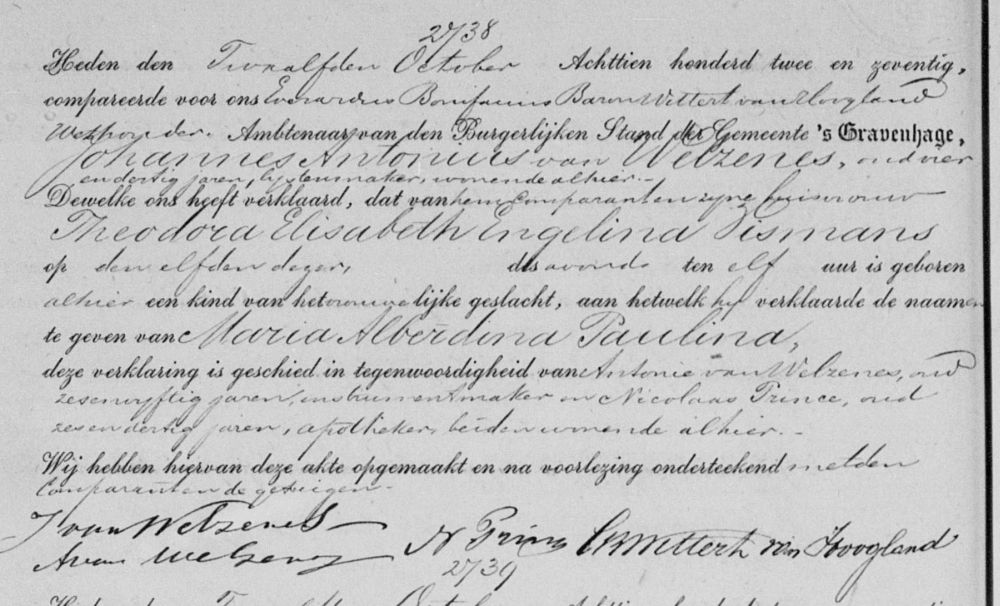 2738
Heden den Twaalfden October Achttien honderd twee en zeventig,
compareerde voor ons Everardus Bonifacius Baron Wittert van Hoogland
Wethouder. Ambtenaar van den Burgerlijken Stand der Gemeente 's Gravenhage,
Johannes Antonius van Welzenes, oud vier
en dertig jaren, lystenmaker, wonende alhier.-
Dewelke ons heeft verklaard, dat van hem Comparant en zyne huisvrouw
Theodora Elisabeth Engelina Tismans
op den elfden dezer, des avonds ten elf uur is geboren
alhier een kind van het vrouwelijke geslacht, aan hetwelk hy verklaarde de naamen
te geven van Maria Alberdina Paulina,
deze verklaring is geschied in tegenwoordigheid van Antonie van Welzenes, oud
zesenvyftig jaren, instrumentmaker en Nicolaas Prince, oud
zes en dertig jaren, apotheker, beiden wonende alhier.-
Wij hebben hiervan deze akte opgemaakt en na voorlezing onderteekend met den
Comparant en de getuigen-
J van Welzenes
A van Welzenes N Prince EB Wittert van Hoogland
2739
Heden den October Achttien honderd twee en zeventig,